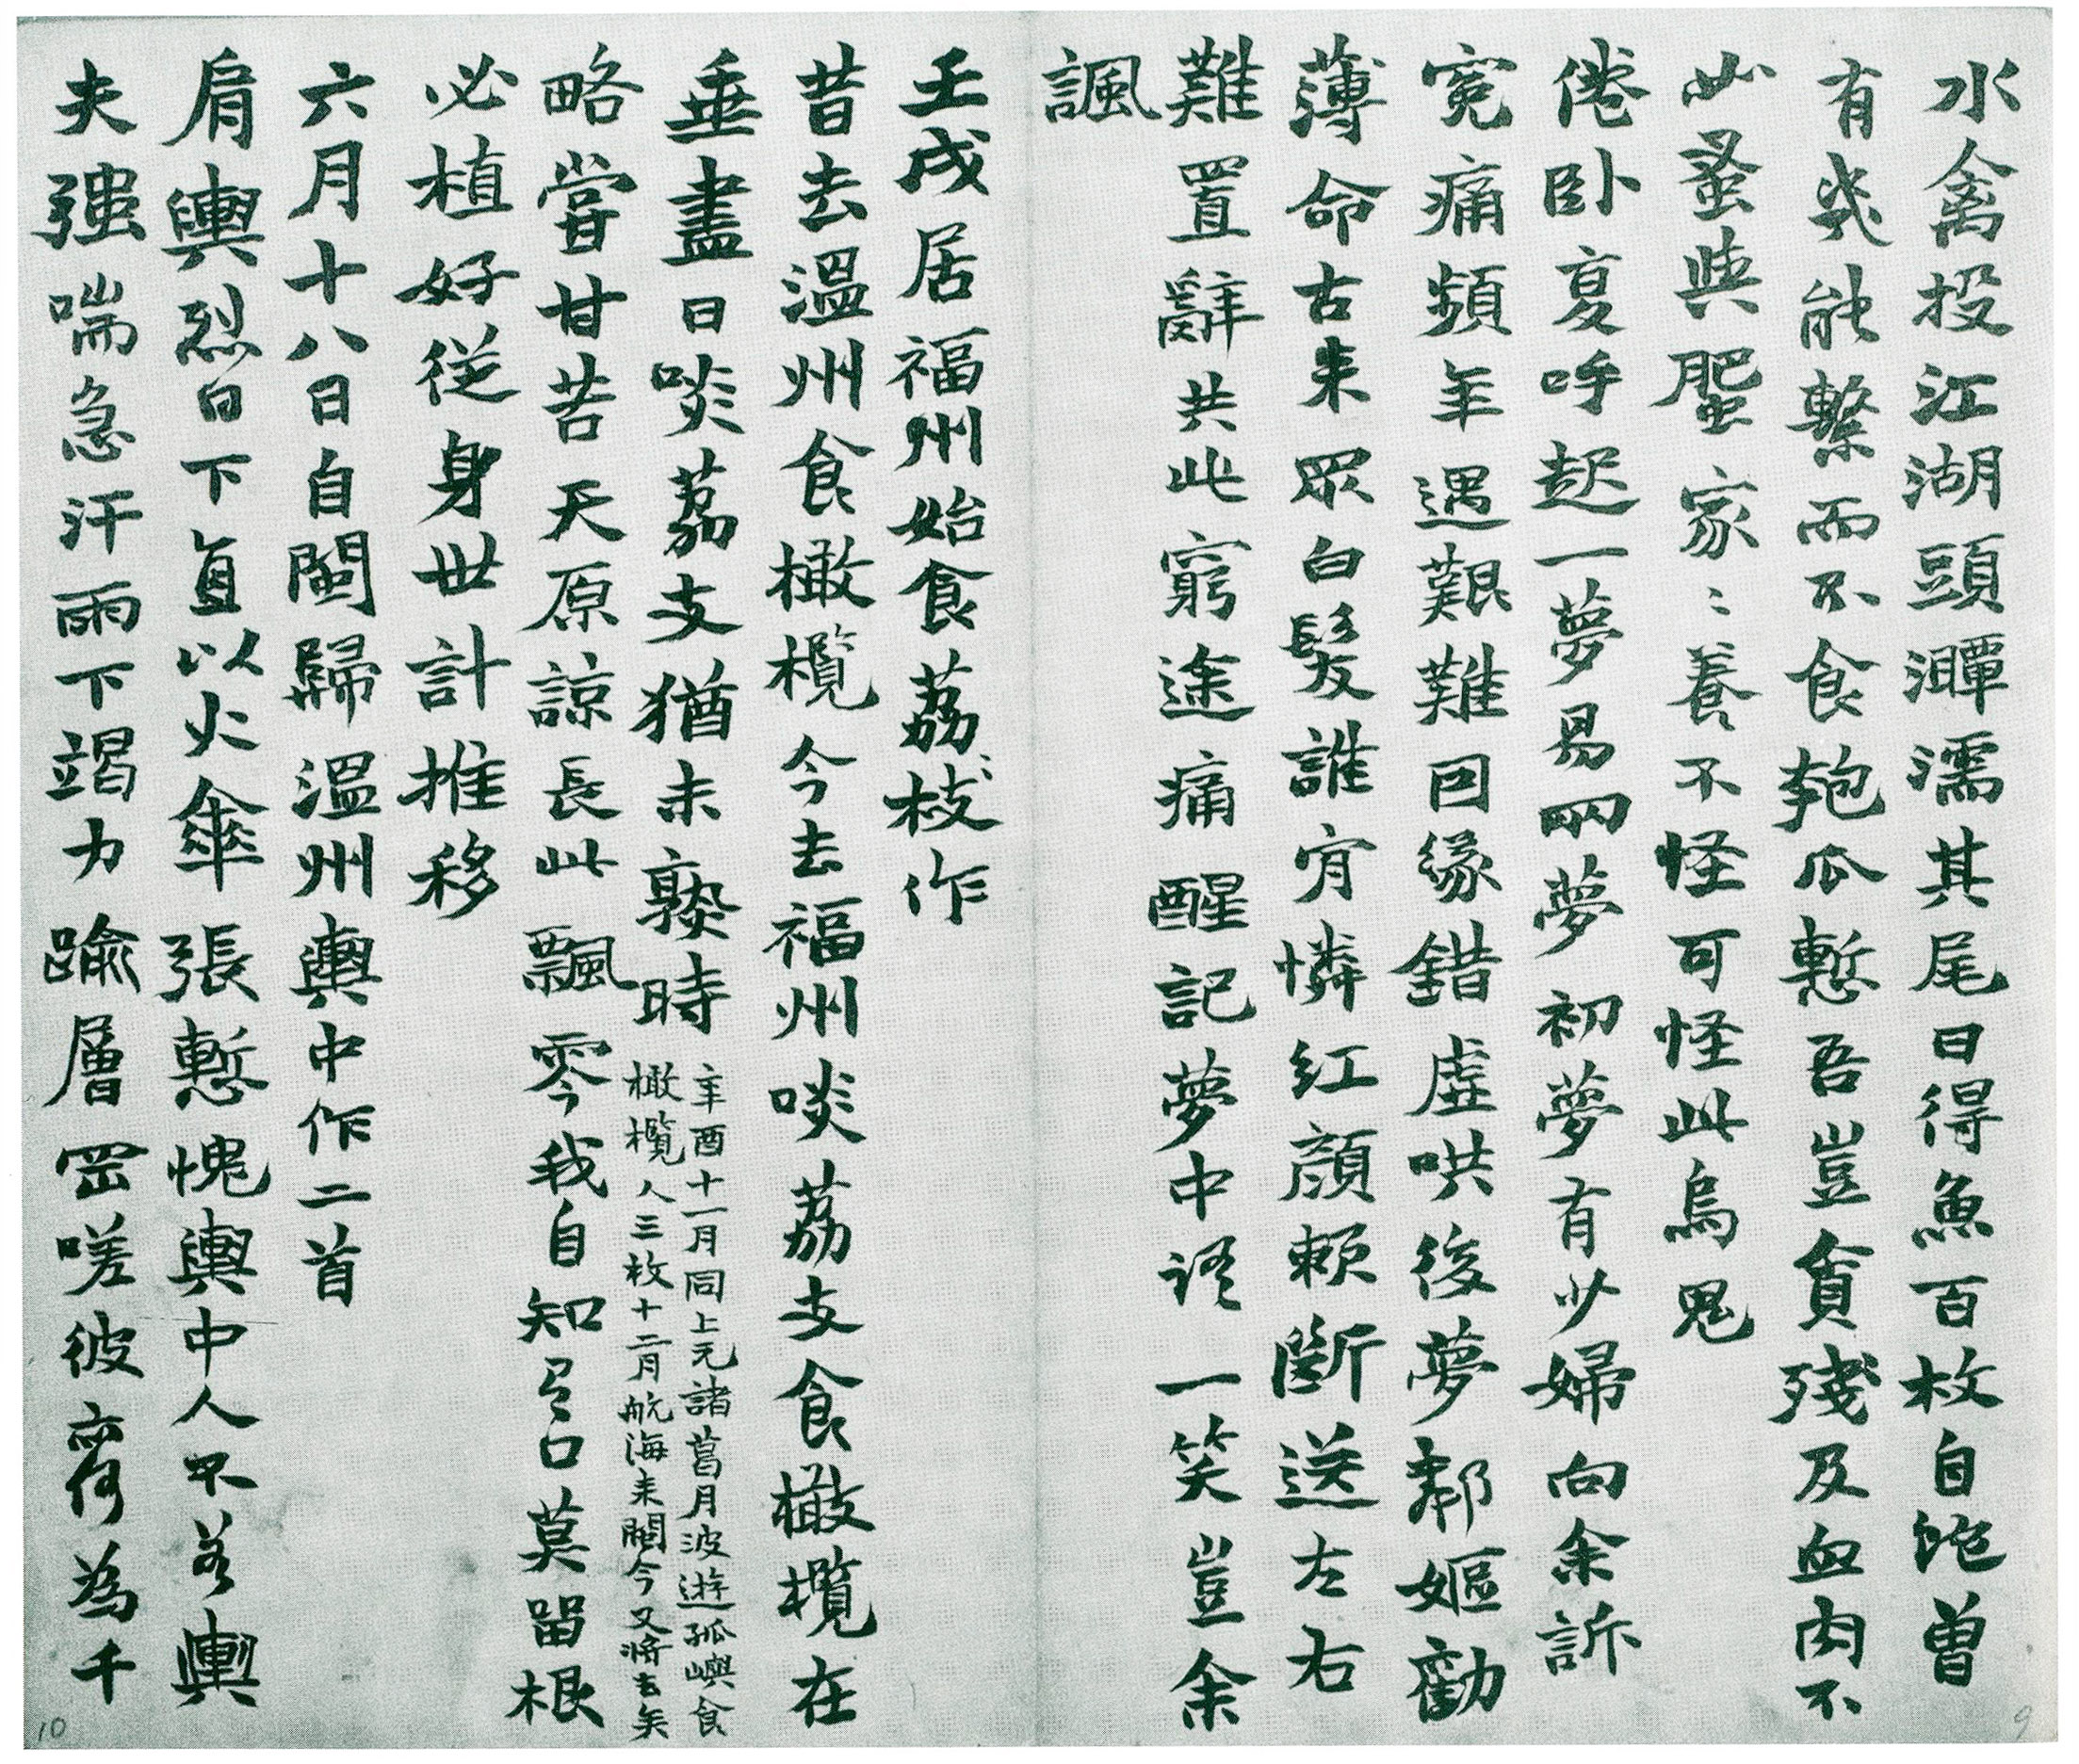 水禽投江湖頭潭濡其尾日得魚百枚自詑曾
有幾能繫而不食匏瓜慙吾豈貪殘及血肉不
必蚤與𧒽家〻養不怪可怪此烏鬼
倦卧夏呼起一夢易四夢初夢有少婦向余訴
冤痛頻年遇艱難回緣錯虛哄後夢鄰嫗勸
薄命古来眾白髮誰肎憐紅顏賴斷送左右
難置辭共此窮途痛醒記夢中語一笑豈余
諷
壬戌居福州始食荔枝作
昔去溫州食橄欖今去福州啖荔支食橄欖在
垂盡日啖荔支猶未孰時
辛酉十一月同上元諸葛月波遊孤嶼食
橄欖人三枚十二月航海来閩今又將去矣
略嘗甘苦天原諒長此飄零我自知呂口莫留根
必植好從身世計推移
六月十八日自閩歸溫州輿中作二首
肩輿烈日下直以火傘張慙愧輿中人不若輿
夫強喘急汗雨下竭力踰層岡嗟彼齊何為千